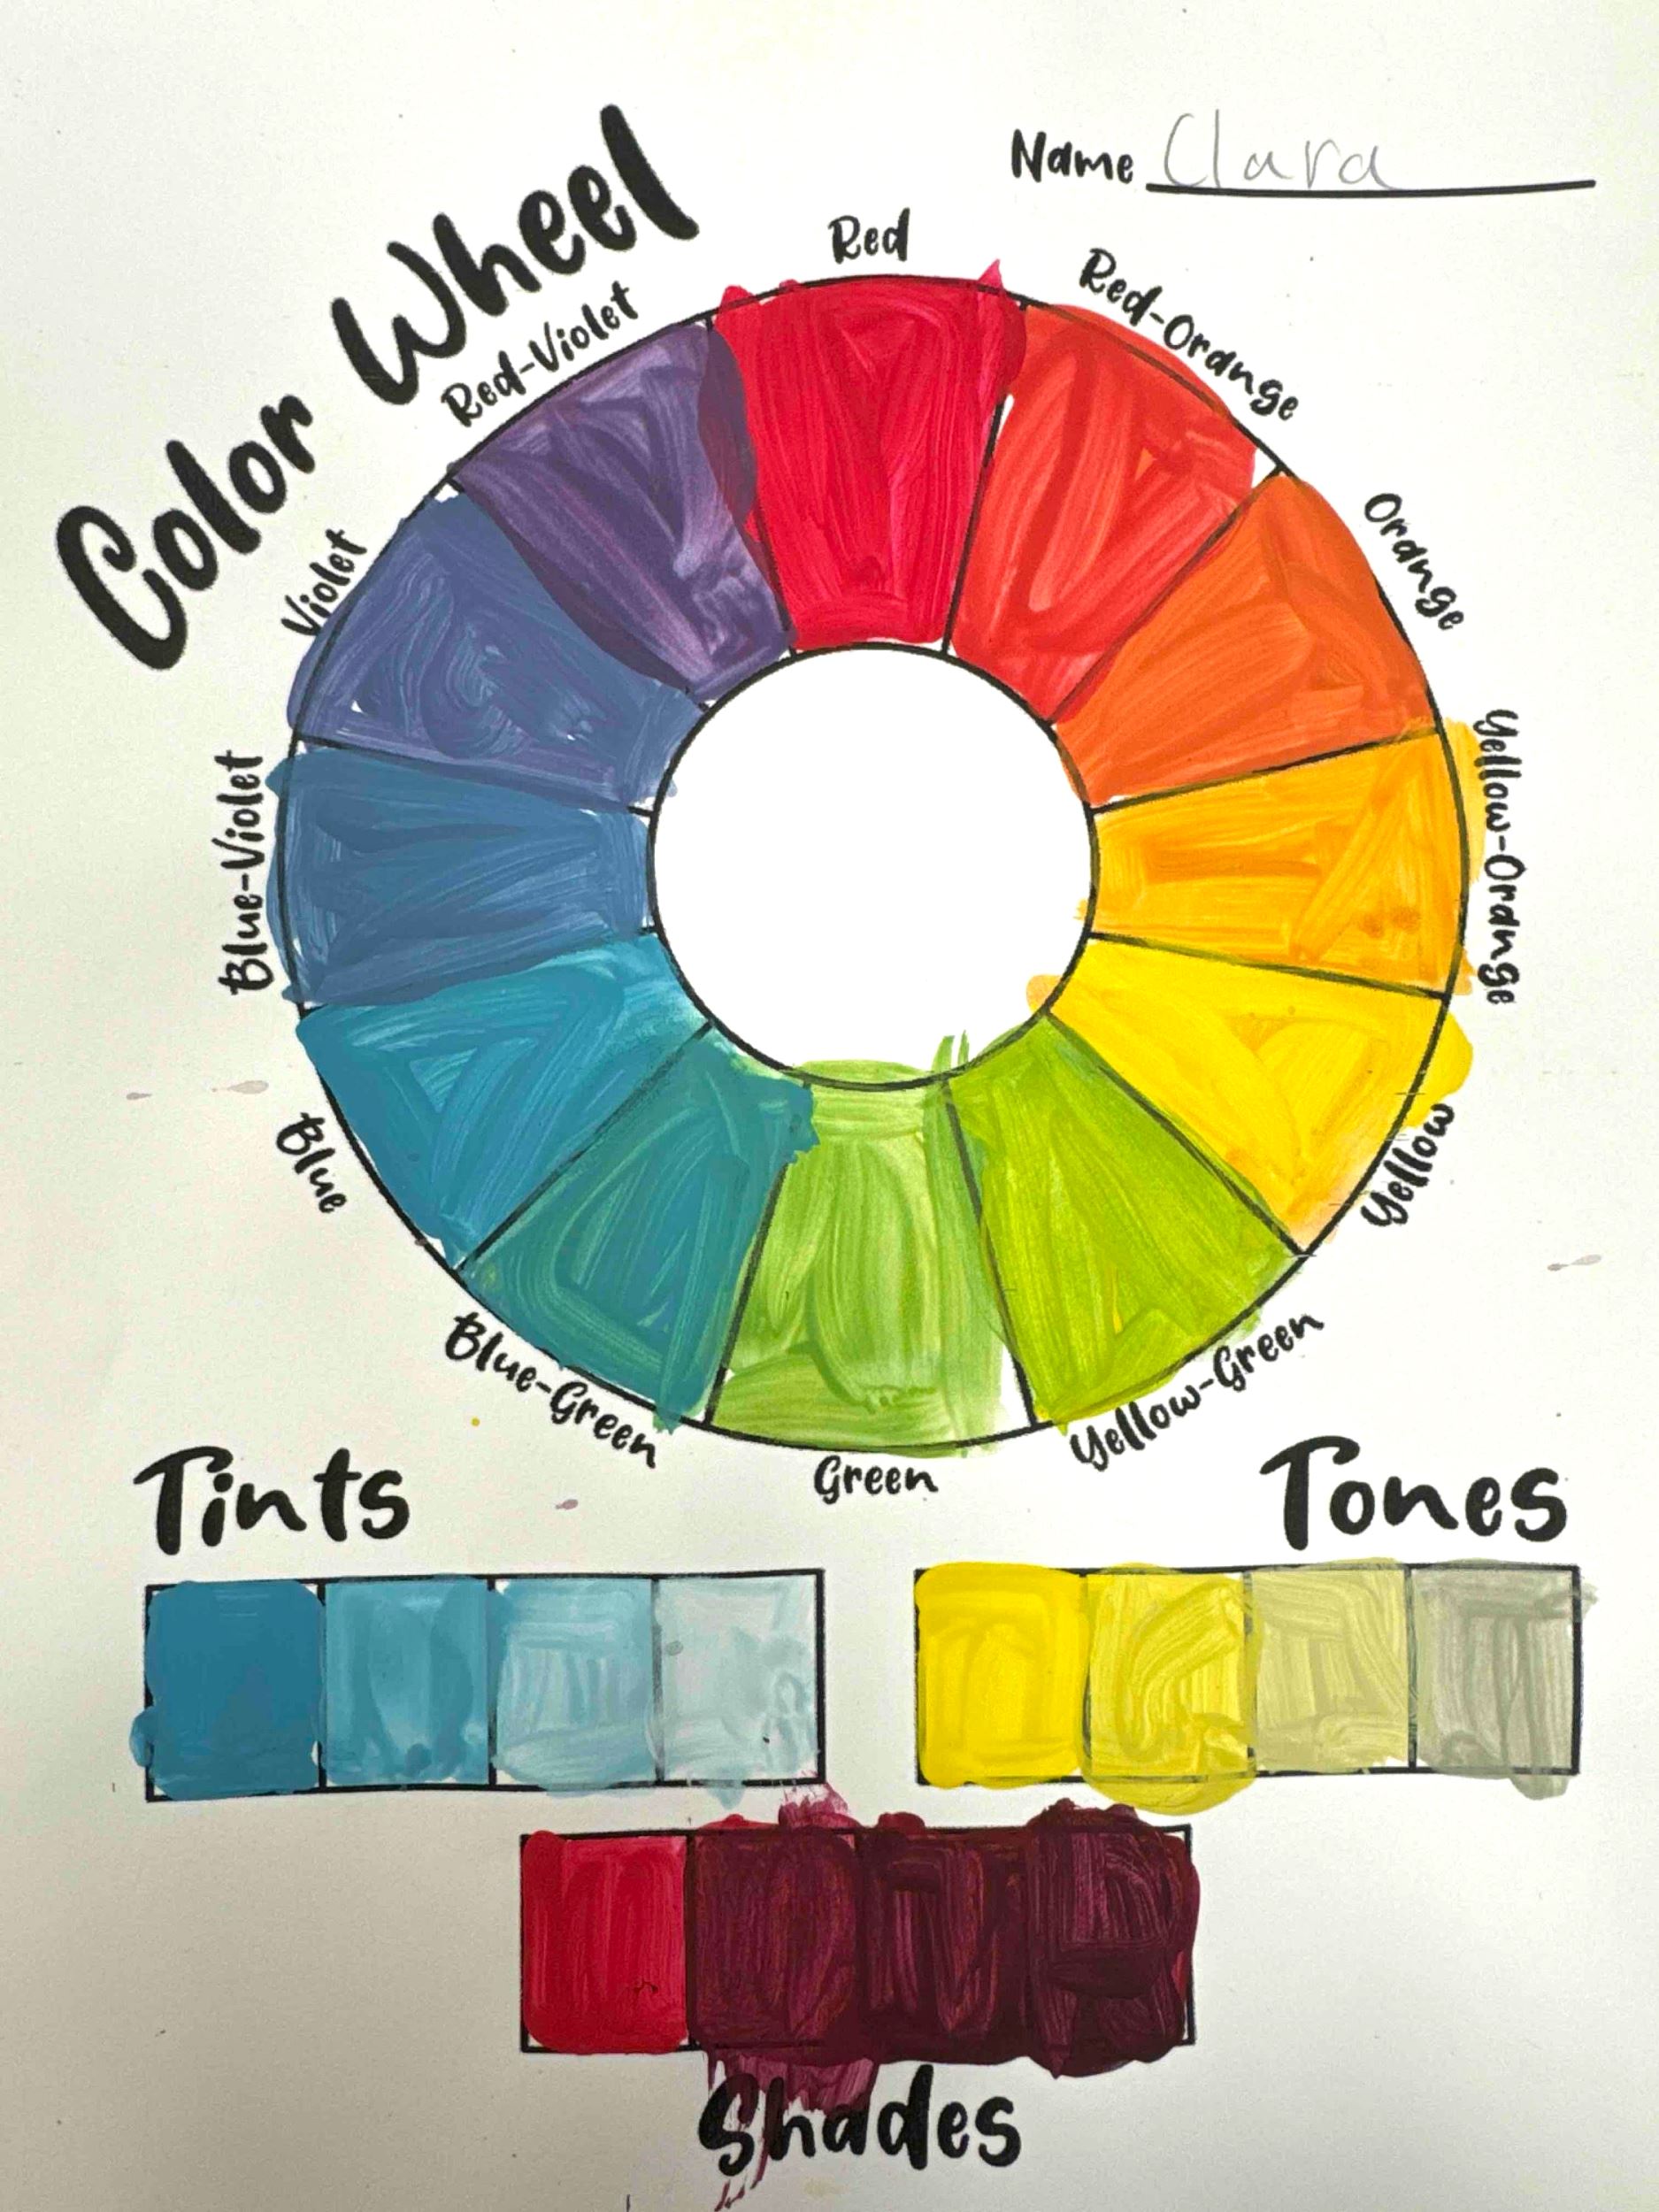 Name Clara
Color Wheel
Red
Red-Orange
Orange
Yellow-Orange
Yellow
Yellow-Green
Green
Blue-Green
Blue
Blue-Violet
Violet
Red-Violet
Tints
Tones
Shades